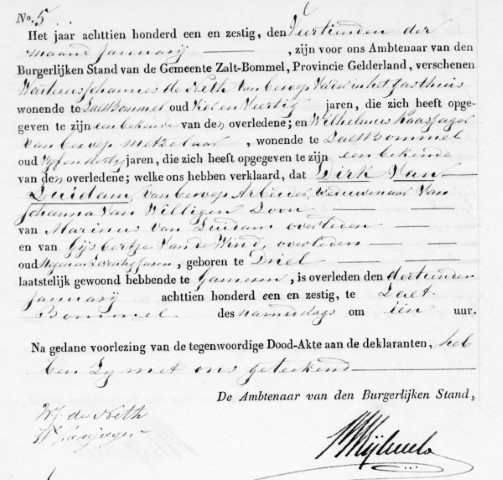 No. 5.
Het jaar achttien honderd een en zestig, den Veertienden der
maand January, zijn voor ons Ambtenaar van den
Burgerlijken Stand van de Gemeente Zalt-Bommel, Provincie Gelderland, verschenen
Johannes de Neth van beroep Vader in het Gasthuis
wonende te Zalt Bommel oud Vier en Veertig jaren, die zich heeft opge-
geven te zijn een bekende van den overledene; en Wilhelmus Haasjager
van beroep metzelaar, wonende te Zalt Bommel
oud Vyf en dertig jaren, die zich heeft opgegeven te zijn een bekende
van den overledene; welke ons hebben verklaard, dat Dirk Van
Zuidam, van beroep Arbeider, Weduwenaar Van
Johanna Van Willigen Zoon
van Marinus van Zuidam overleden
en van Gysbertje Van de Wind, overleden
oud Negen en Zeventig Jaren, geboren te Driel
laatstelijk gewoond hebbende te Gameren, is overleden den dertienden
January achttien honderd een en zestig, te Zalt
Bommel des namiddags om één uur.
Na gedane voorlezing van de tegenwoordige Dood-Akte aan de deklaranten, heb
ben Zy met ons geteekend
De Ambtenaar van den Burgerlijken Stand,
WJ de Neth
W Haasjager